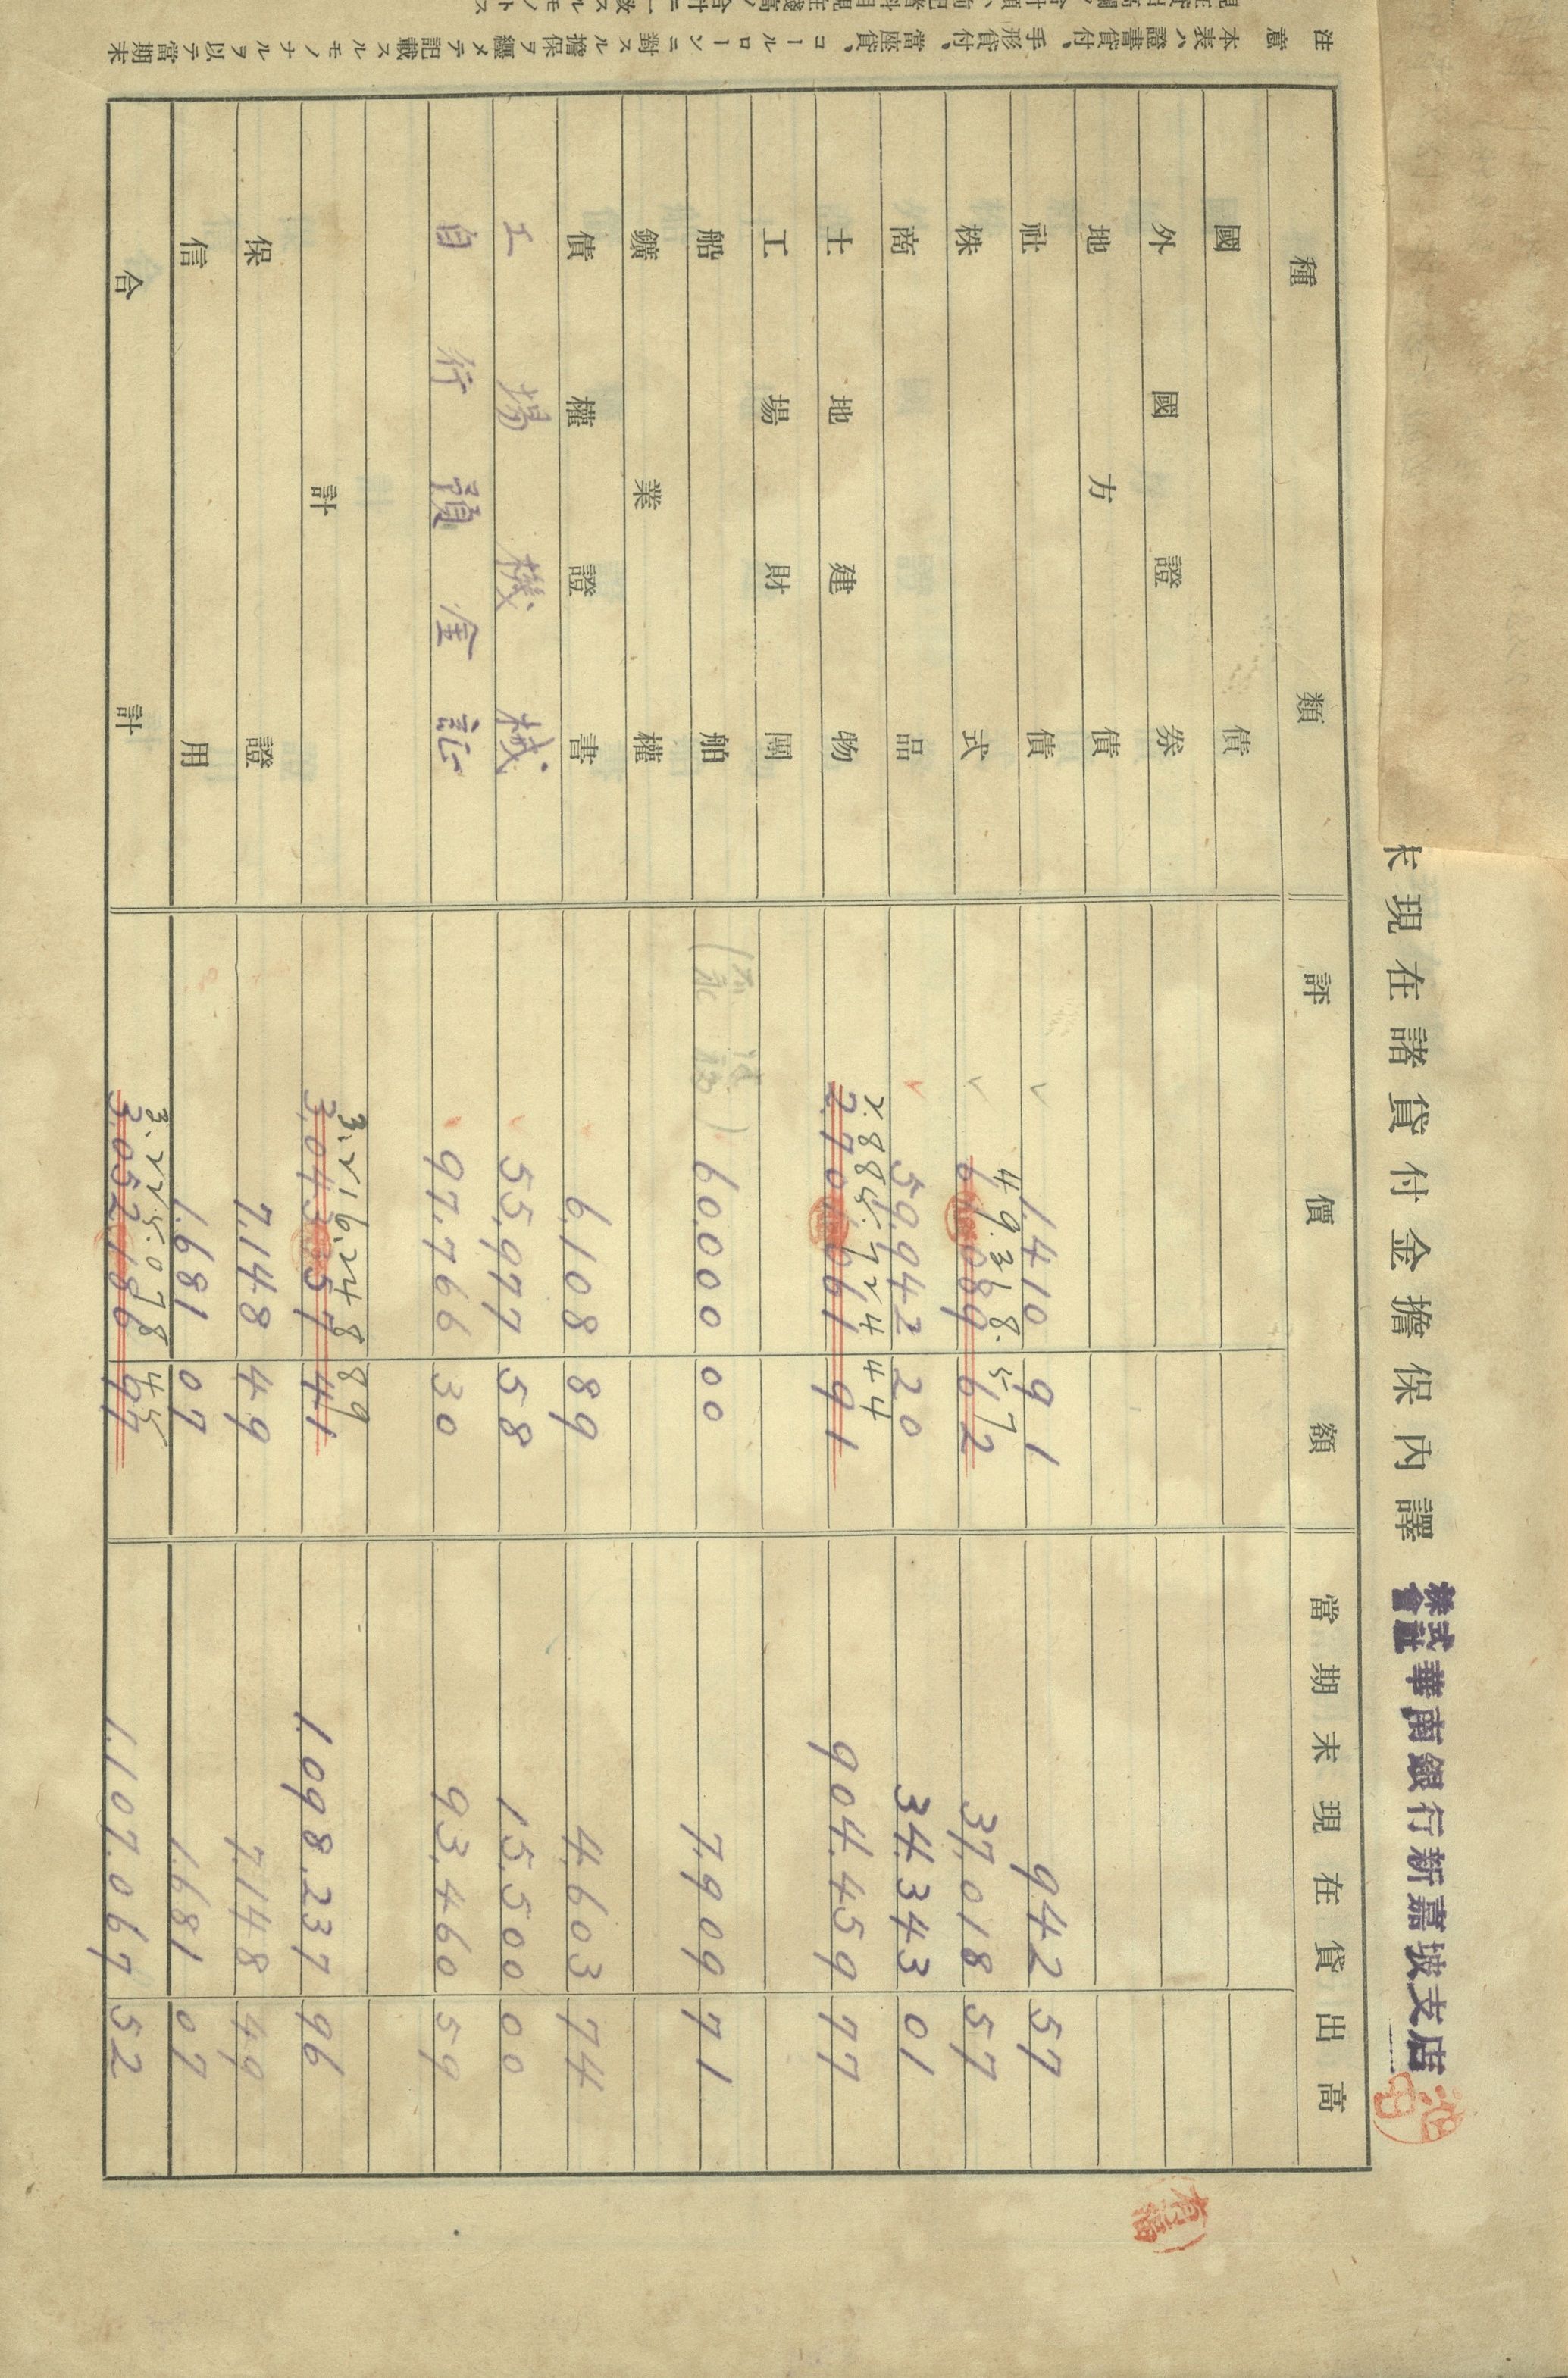 末現在諸貸付金擔保內譯 株式會社華南銀行新嘉坡支店
種類 評價額 當期末現在貸出高
國債
外國證券
地方債
社債 1.410 91 942 57
49.318.57
株式 61.089 62 37.018 57
商品 59.942 20 34.343 01
2.885.724 44
土地建物 2.701.061 91 904.459 77
工場財團
船舶 60.000 00 7.909 71
鑛業權
債權證書 6.108 89 4.603 74
工場機械 55.977 58 15.500 00
自行預金証 97.766 30 93.460 59
3.216.248 89
計 3.043.357 41 1.098.237 96
保證 7.148 49 7.148 49
信用 1.681 07 1.681 07
3.225.078 45
合計 3.052.186 97 1.107.067 52
注意 本表ハ證書貸付、手形貸付、當座貸、コールローンニ對スル擔保ヲ纏メテ記載スルモノナルヲ以テ當期末